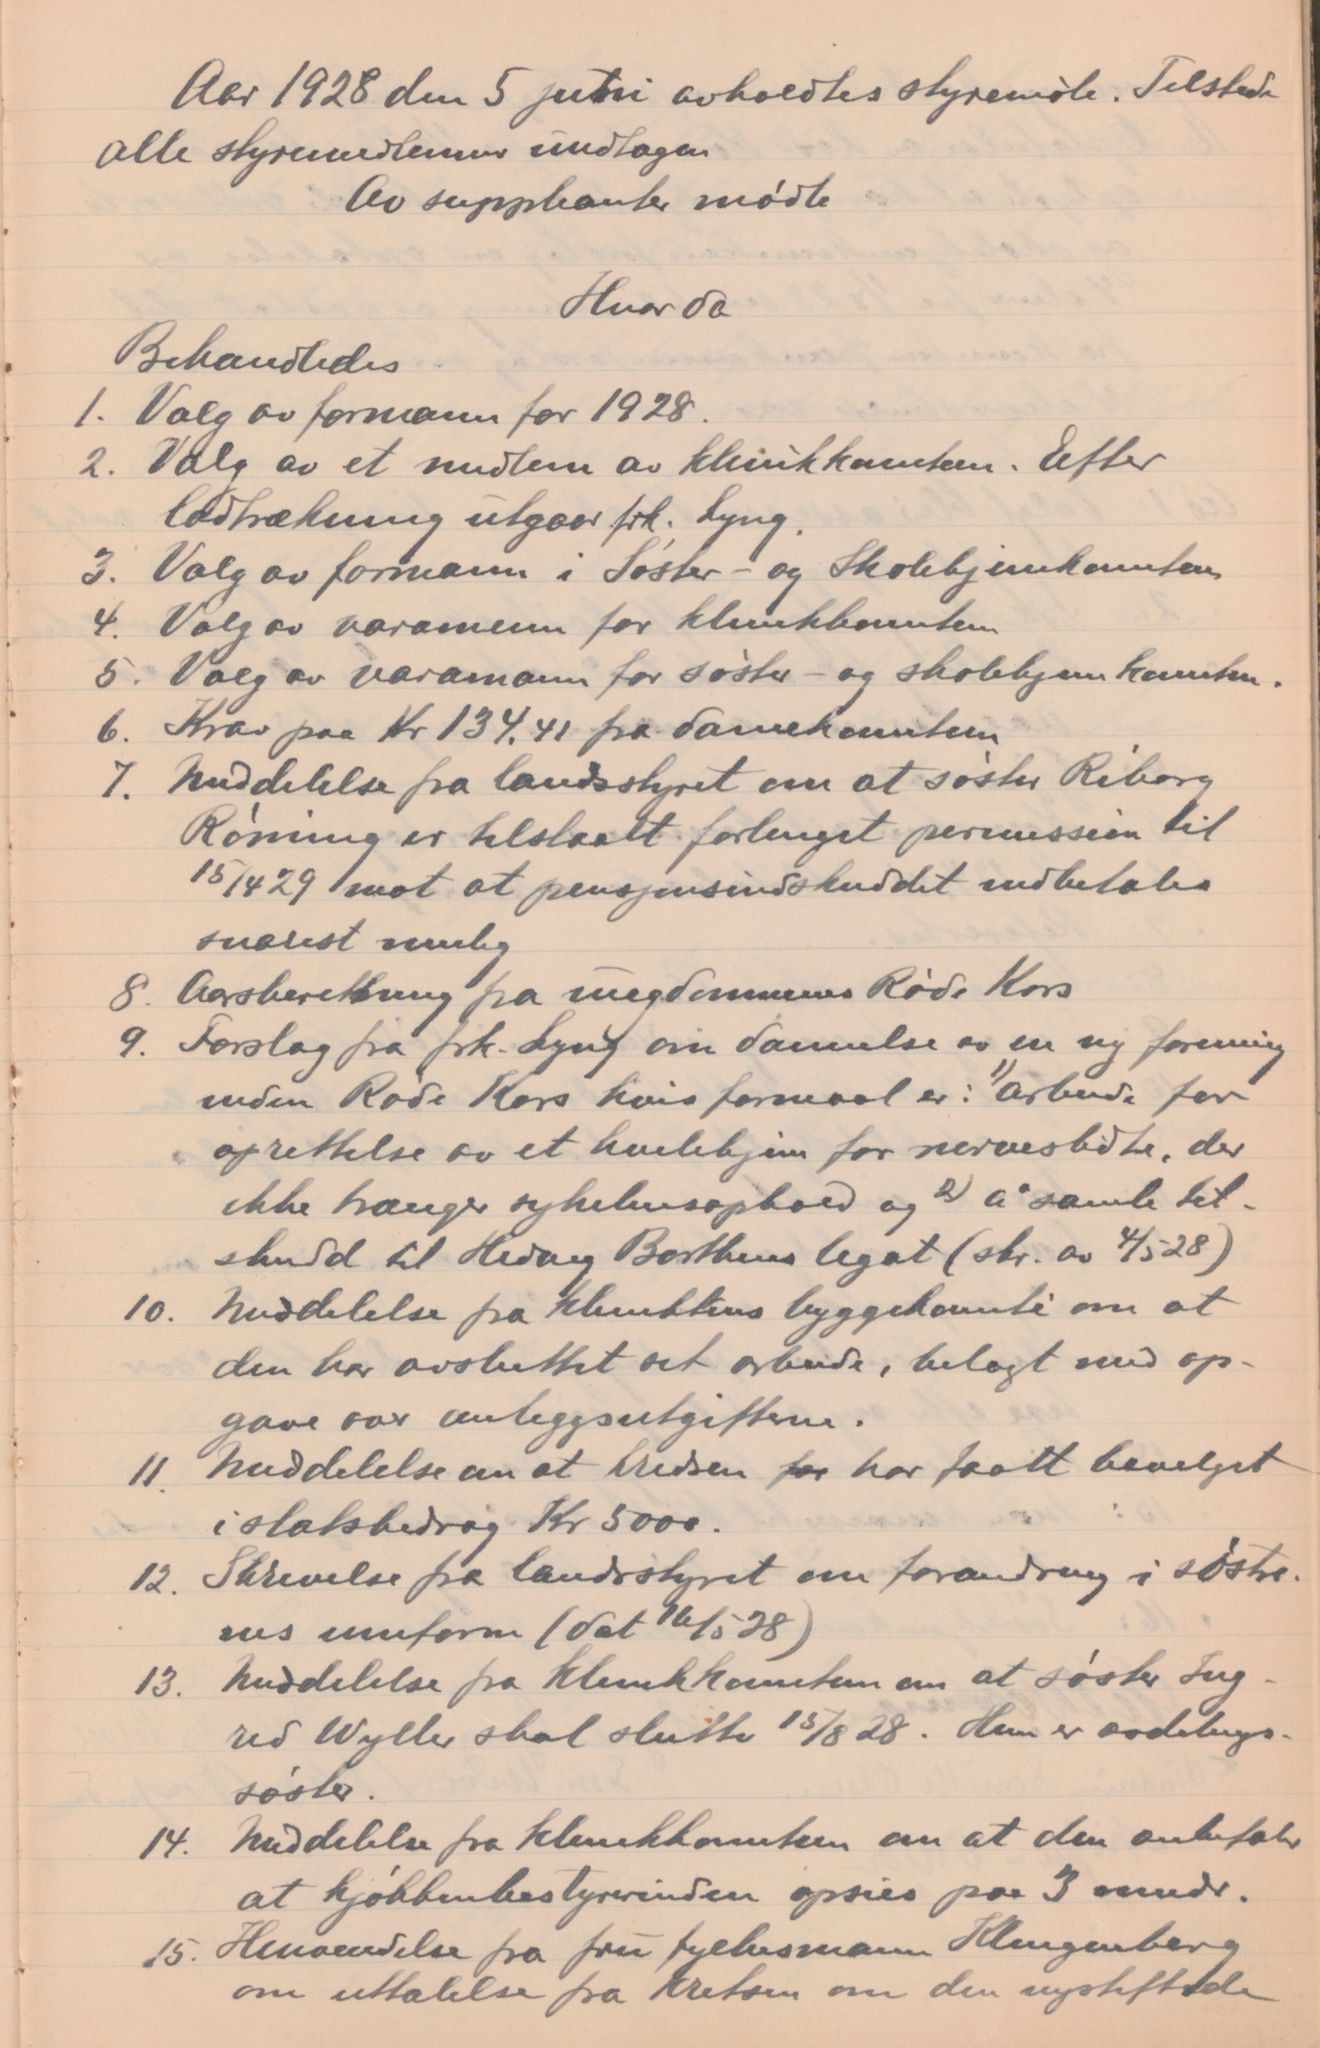 Aar 1928 den 5 juni avholdtes styremöte. Tilstede
alle styremedlemmer undtagen
Av suppleanter mödte
Hvor da
Behandledes
1. Valg av formann for 1928.
2. Valg av et medlem av klinikkomiteen. Efter
lodtrækning utgaar frk. Lyng.
3. Valg av formann i Söster- og Skolehjemkomiteen
4. Valg av varamenn for klinikkomiteen
5. Valg av varamann for söster- og skolehjemkomiteen.
6. Krav paa Kr 134,41 fra damekomiteen
7. Meddelelse fra landsstyret om at söster Riborg
Röning er tilstaatt forlenget permission til
15/4 29 mot at pensjonsindskuddet indbetales
snarest mulig
8. Aarsberetning fra ungdommens Röde Kors
9. Forslag fra frk. Lyng om dannelse av en ny forening
inden Röde Kors hvis formaal er: 1) Arbeide for
oprettelse av et hvilehjem for nerveslidte, der
ikke trænger sykehusophold og 2) å samle til-
skudd til Hedvig Barthens legat (skr. av 4/5 28)
10. Meddelelse fra klinikkens byggekomité om at
den har avsluttet sit arbeide, belagt med op-
gave over anleggsutgiftene.
11. Meddelelse om at kredsen for har faatt bevilget
i statsbedrag Kr 5000.
12. Skrivelse fra landsstyret om forandring i söstre-
nes uniform (dat 16/5 28)
13. Meddelelse fra klinikkomiteen om at söster Ing-
rid Wyller skal slutte 15/8 28. Hun er avdelings-
söster.
14. Meddelelse fra klinikkomiteen om at den anbefaler
at kjökkenbestyrerinden opsies paa 3 mndr.
15. Henvendelse fra fru fylkesmann Klingenberg
om uttalelse fra kretsen om den nystiftede